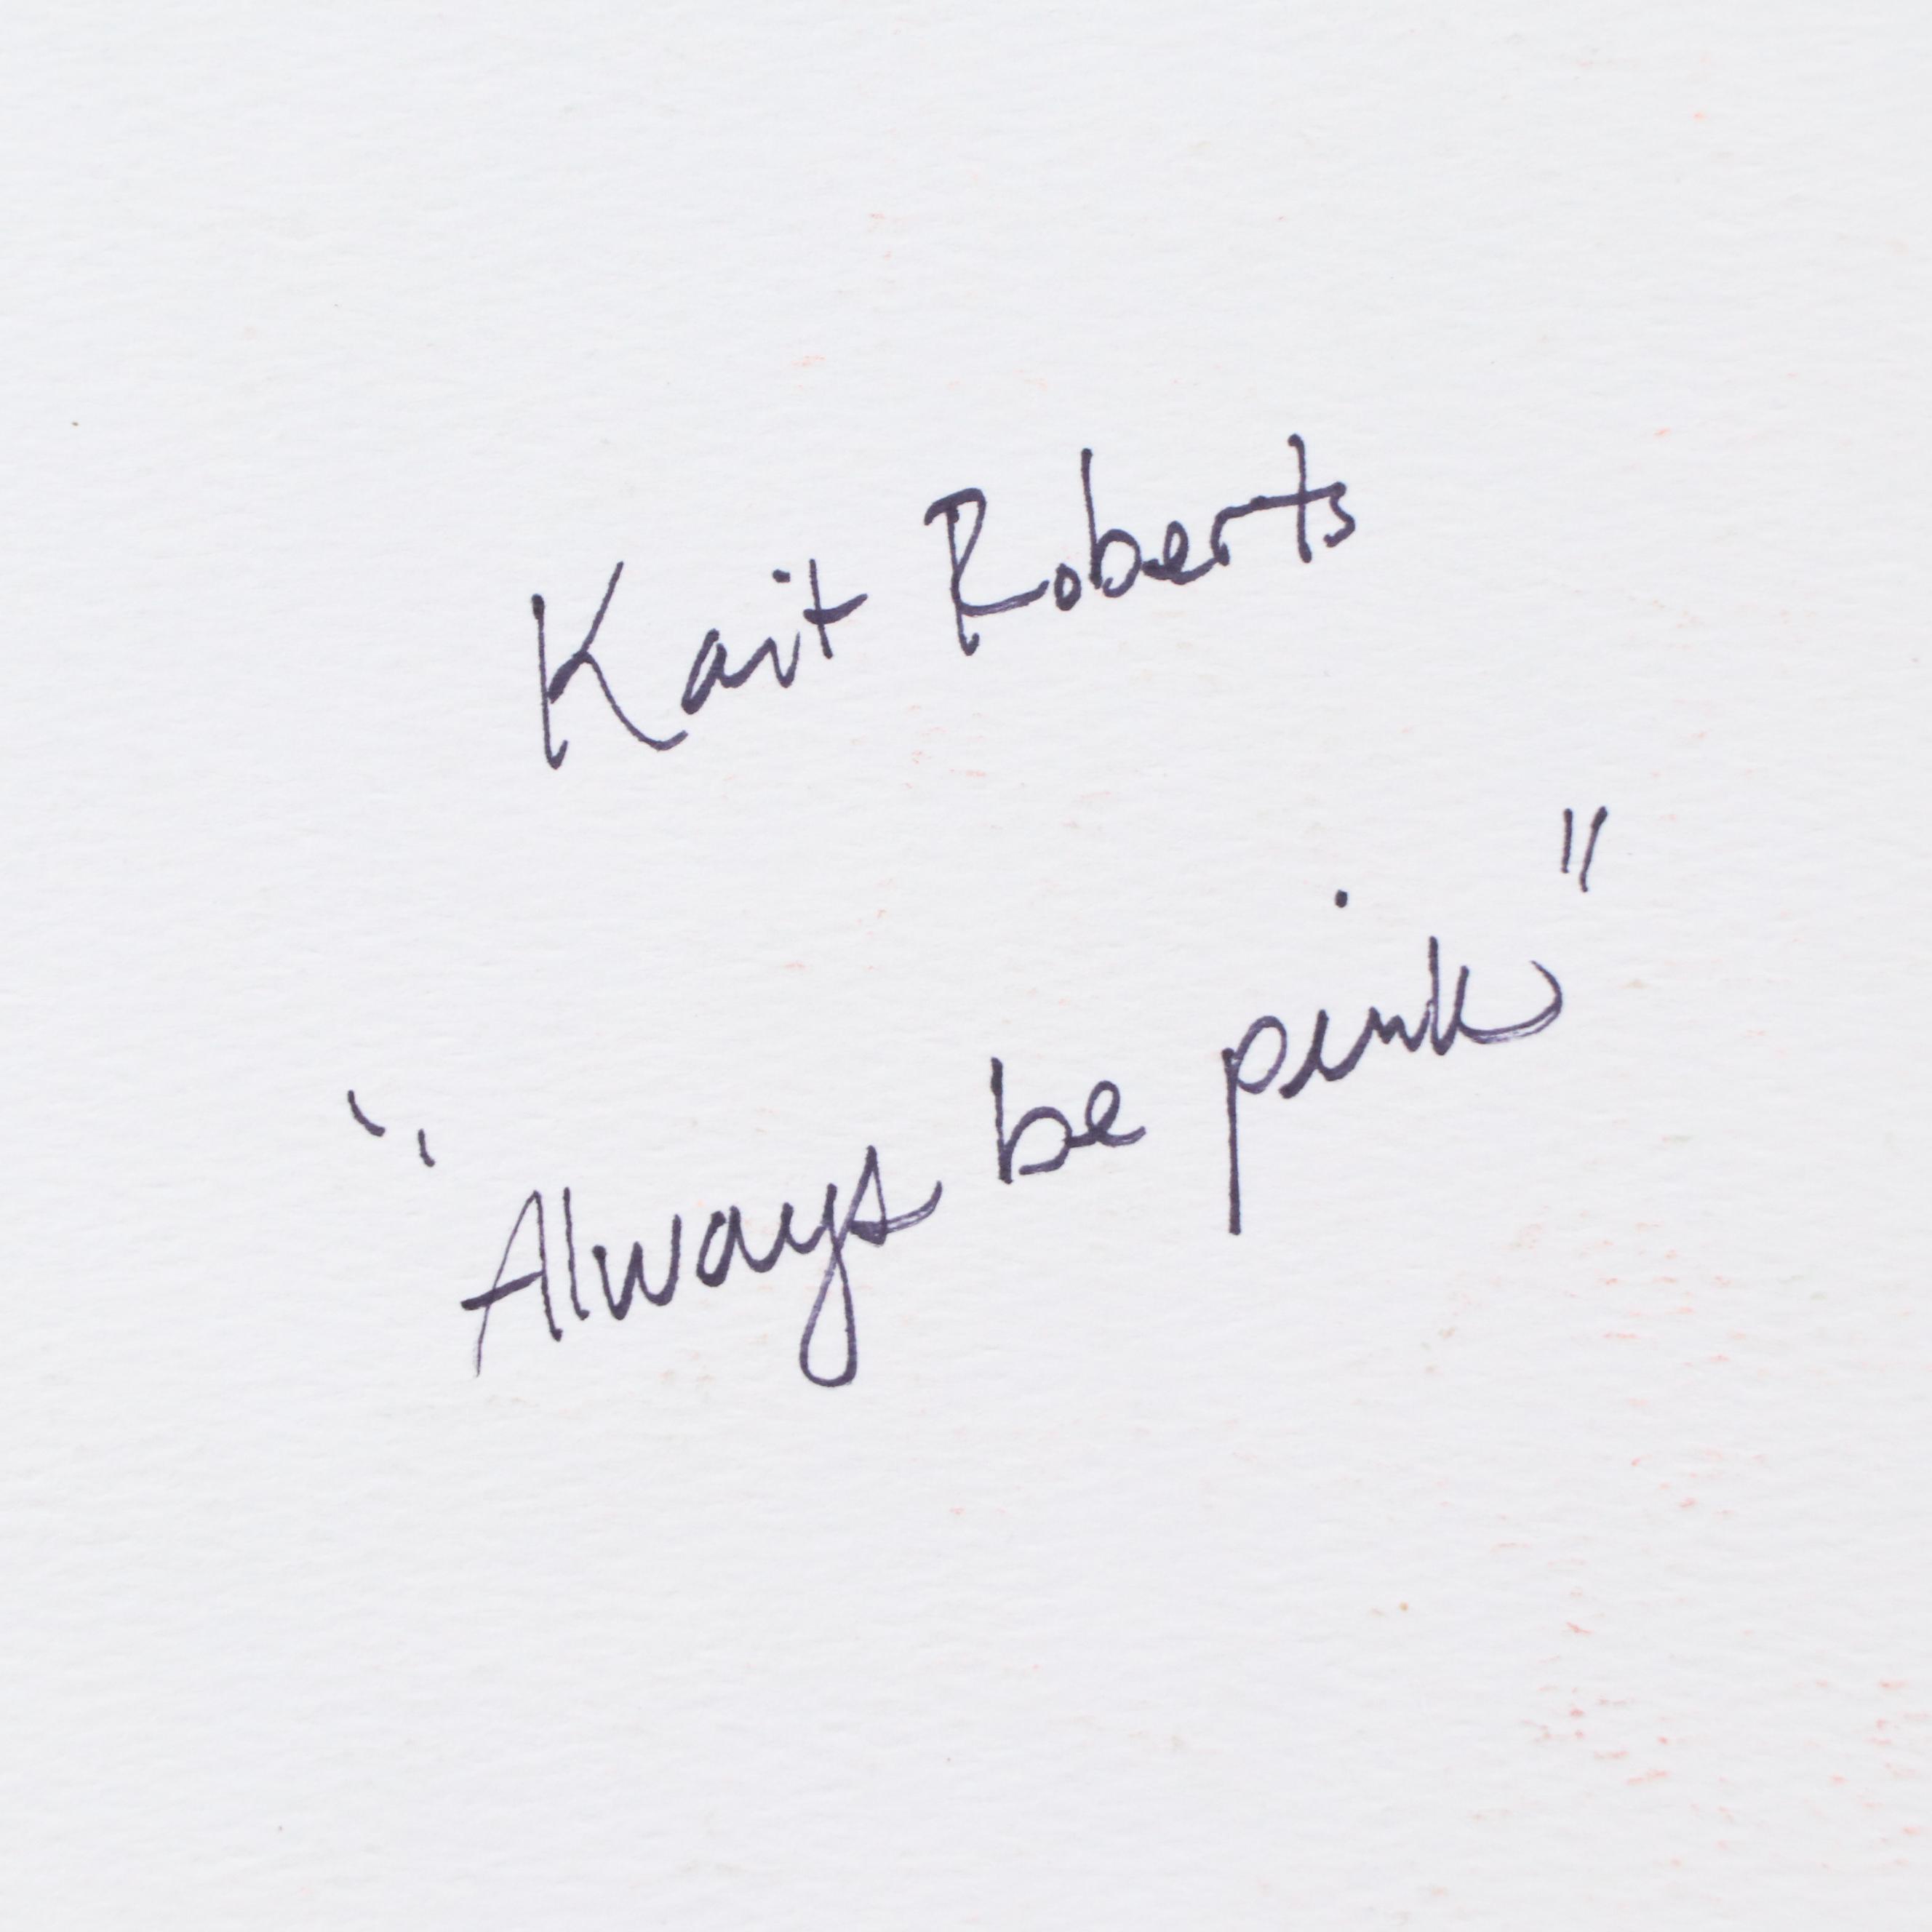 Kait Roberts
"Always be pink"